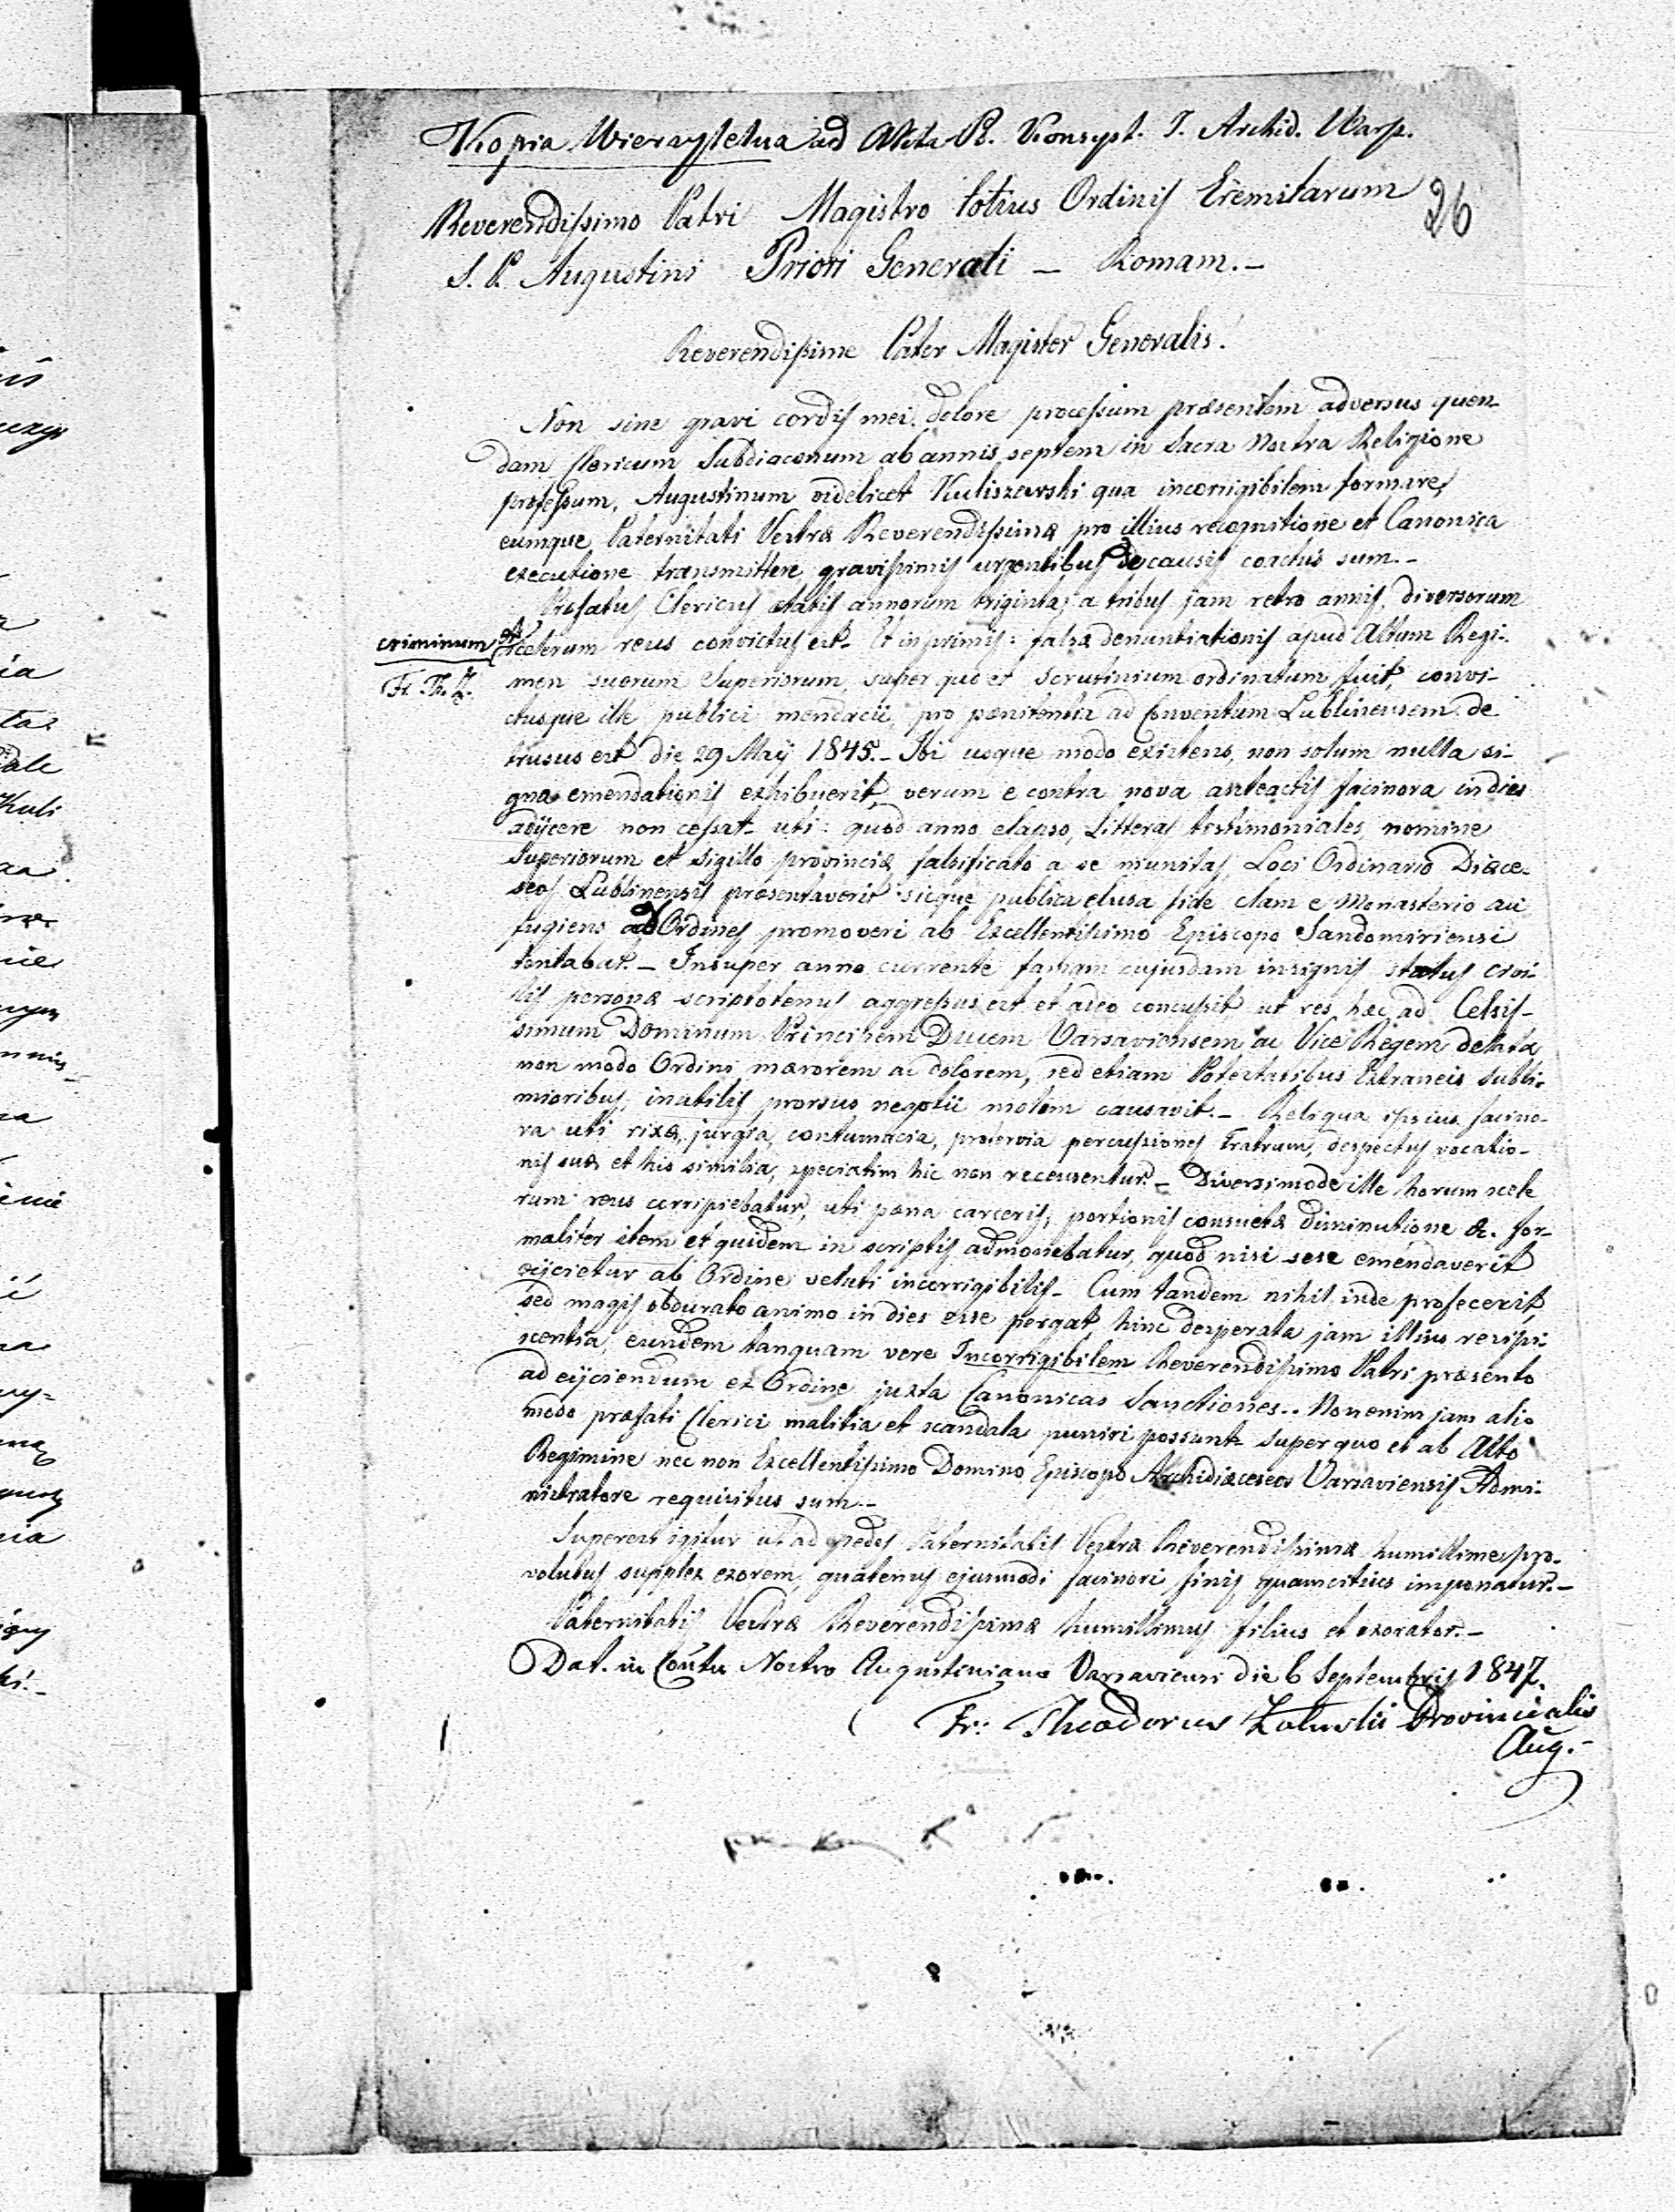 Kopia Wierzytelna ad Akta R. Konsyst. J. Archid. Warsz.
26
Reverendissimo Patri Magistro totius Ordinis Eremitarum
S. P. Augustini Priori Generali — Romam.—
Reverendissime Pater Magister Generalis!
Non sine gravi cordis mei dolore processum præsentem adversus quen-
dam Clericum Subdiaconum ab annis septem in Sacra Nostra Religione
professum, Augustinum videlicet Kuliszewski qua incorrigibilem formare,
eumque Paternitati Vestræ Reverendissimæ pro illius recognitione et Canonica
executione transmittere gravissimis urgentibus de causis coactus sum.—
Præfatus Clericus ætatis annorum triginta, a tribus jam retro annis, diversorum
criminum et
Fr. Th. Z.
scelerum reus convictus est. Et inprimis: falsæ denuntiationis apud Altum Regi-
men suorum Superiorum, super quo et Scrutinium ordinatum fuit, convi-
ctusque ille publici mendacii, pro pænitentia ad Conventum Lublinensem de
trusus est die 29 Maij 1845.— Ibi usque modo existens, non solum nulla si-
gna emendationis exhibuerit, verum e contra nova anteactis facinora in dies
adijcere non cessat. uti: quod anno elapso, Litteras testimoniales nomine
Superiorum et sigillo provinciæ falsificato a se munitas, Loci Ordinario Diæce-
seos Lublinensis præsentaverit sicque publica elusa fide clam e Monasterio au
fugiens ad Ordines promoveri ab Excellentissimo Episcopo Sandomiriensi
tentabat.— Insuper anno currente famam cujusdam insignis status civi-
lis personæ scriptotenus aggressus est et adeo concussit ut res hæc ad Celsis-
simum Dominum Principem Ducem Varsaviensem ac Vice Regem delata
non modo Ordini mærorem ac dolorem, sed etiam Potestatibus Extraneis Subli-
mioribus, inutilis prorsus negotii molem causavit.— Reliqua ipsius facino-
ra uti rixæ, jurgia, contumacia, protervia percussiones Fratrum, despectus vocatio-
nis suæ et his similia, speciatim hic non recensentur.— Diversimode ille horum scele
rum reus corripiebatur, uti pæna carceris, portionis consuetæ diminutione &. for-
maliter item et quidem in scriptis admonebatur, quod nisi sese emendaverit
eijcietur ab Ordine veluti incorrigibilis.— Cum tandem nihil inde profecerit,
sed magis obdurato animo in dies esse pergat hinc desperata jam illius resipi-
scentia, eundem tanquam vere Incorrigibilem Reverendissimo Patri præsento
ad eijciendum ex Ordine juxta Canonicas Sanctiones.. Non enim jam alio
modo præfati Clerici malitia et scandala puniri possunt. super quo et ab Alto
Regimine nec non Excellentissimo Domino Episcopo Archidiæceseos Varsaviensis Admi-
nistratore requisitus sum.—
Superest igitur ut ad pedes Paternitatis Vestræ Reverendissimæ humillime pro-
volutus supplex exorem, quatenus ejusmodi facinori finis quamcitius imponatur.—
Paternitatis Vestræ Reverendissimæ humillimus filius et exorator.—
Dat. in Contu Nostro Augustiniano Varsaviensi die 6 Septembris 1847.
Fr: Theodorus Provincialis
Aug.—